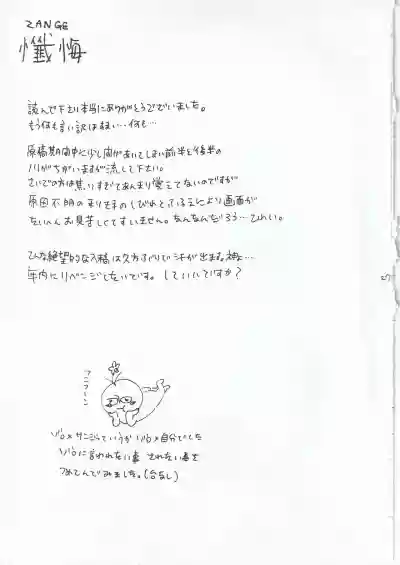 ZANGE
懺悔
読んで下さい本当にありがとうございました。
もう何も言い訳は…何も…
原稿期間中に少し間があいてしまい前半と後半の
ノリがちがいますが流して下さい。
さいごの方は焦りすぎてあんまり覚えてないのですが
原因不明の手のしびれとふるえにより画面が
たいへんお見苦しくてすいません。なんなんだろう…ひれい。
こんな絶望的な入稿は久方ぶりで汗が出ました…
年内にリベンジしたいです。していいですか?
フニフーン
ゾロ×サンジっていうかゾロ×自分でした
ゾロに言われたい事されたい事を
つめこんでみました。(合なし)